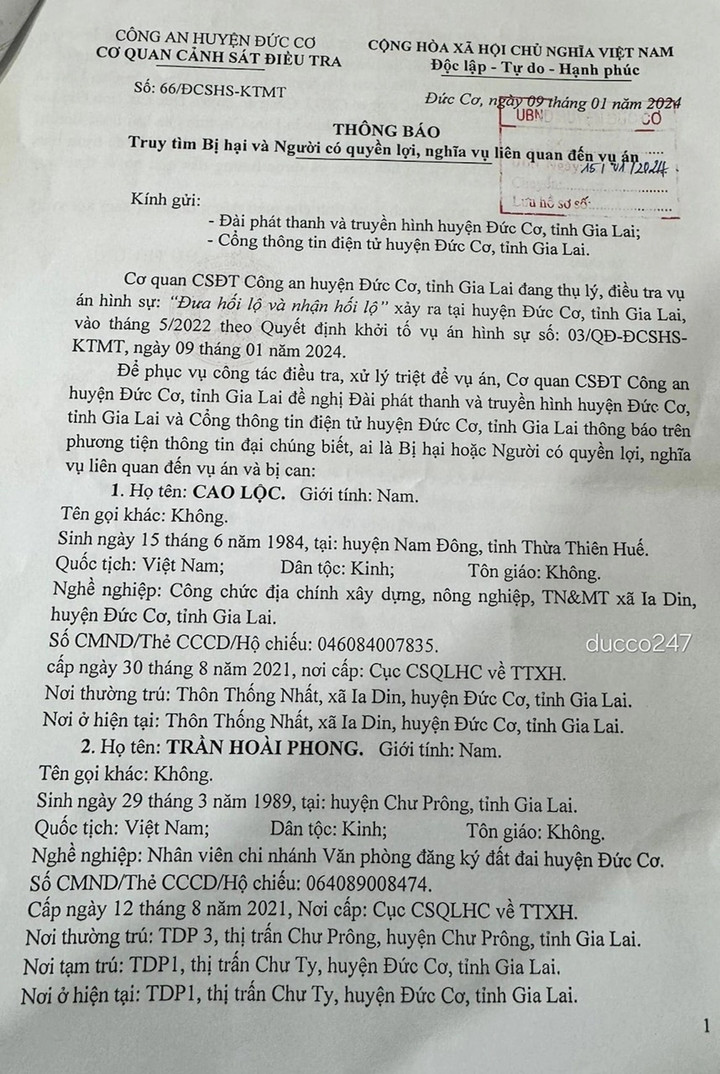 CÔNG AN HUYỆN ĐỨC CƠ
CƠ QUAN CẢNH SÁT ĐIỀU TRA
Số: 66/ĐCSHS-KTMT
CỘNG HÒA XÃ HỘI CHỦ NGHĨA VIỆT NAM
Độc lập - Tự do - Hạnh phúc
Đức Cơ, ngày 09 tháng 01 năm 2024
UBND
CƠ
THÔNG BÁO
Truy tìm Bị hại và Người có quyền lợi, nghĩa vụ liên quan đến vụ án
Ngày: 15/01/2024
Lưu hồ sơ số:
Kính gửi:
- Đài phát thanh và truyền hình huyện Đức Cơ, tỉnh Gia Lai;
- Cổng thông tin điện tử huyện Đức Cơ, tỉnh Gia Lai.
Cơ quan CSĐT Công an huyện Đức Cơ, tỉnh Gia Lai đang thụ lý, điều tra vụ
án hình sự: “Đưa hối lộ và nhận hối lộ” xảy ra tại huyện Đức Cơ, tỉnh Gia Lai,
vào tháng 5/2022 theo Quyết định khởi tố vụ án hình sự số: 03/QĐ-ĐCSHS-
KTMT, ngày 09 tháng 01 năm 2024.
Để phục vụ công tác điều tra, xử lý triệt để vụ án, Cơ quan CSĐT Công an
huyện Đức Cơ, tỉnh Gia Lai đề nghị Đài phát thanh và truyền hình huyện Đức Cơ,
tỉnh Gia Lai và Cổng thông tin điện tử huyện Đức Cơ, tỉnh Gia Lai thông báo trên
phương tiện thông tin đại chúng biết, ai là Bị hại hoặc Người có quyền lợi, nghĩa
vụ liên quan đến vụ án và bị can:
1. Họ tên: CAO LỘC. Giới tính: Nam.
Tên gọi khác: Không.
Sinh ngày 15 tháng 6 năm 1984, tại: huyện Nam Đông, tỉnh Thừa Thiên Huế.
Quốc tịch: Việt Nam; Dân tộc: Kinh; Tôn giáo: Không.
Nghề nghiệp: Công chức địa chính xây dựng, nông nghiệp, TN&MT xã Ia Din,
huyện Đức Cơ, tỉnh Gia Lai.
Số CMND/Thẻ CCCD/Hộ chiếu: 046084007835.
ducco247
cấp ngày 30 tháng 8 năm 2021, nơi cấp: Cục CSQLHC về TTXH.
Nơi thường trú: Thôn Thống Nhất, xã Ia Din, huyện Đức Cơ, tỉnh Gia Lai.
Nơi ở hiện tại: Thôn Thống Nhất, xã Ia Din, huyện Đức Cơ, tỉnh Gia Lai.
2. Họ tên: TRẦN HOÀI PHONG. Giới tính: Nam.
Tên gọi khác: Không.
Sinh ngày 29 tháng 3 năm 1989, tại: huyện Chư Prông, tỉnh Gia Lai.
Quốc tịch: Việt Nam; Dân tộc: Kinh; Tôn giáo: Không.
Nghề nghiệp: Nhân viên chi nhánh Văn phòng đăng ký đất đai huyện Đức Cơ.
Số CMND/Thẻ CCCD/Hộ chiếu: 064089008474.
Cấp ngày 12 tháng 8 năm 2021, Nơi cấp: Cục CSQLHC về TTXH.
Nơi thường trú: TDP 3, thị trấn Chư Prông, huyện Chư Prông, tỉnh Gia Lai.
Nơi tạm trú: TDP1, thị trấn Chư Ty, huyện Đức Cơ, tỉnh Gia Lai.
Nơi ở hiện tại: TDP1, thị trấn Chư Ty, huyện Đức Cơ, tỉnh Gia Lai.
1